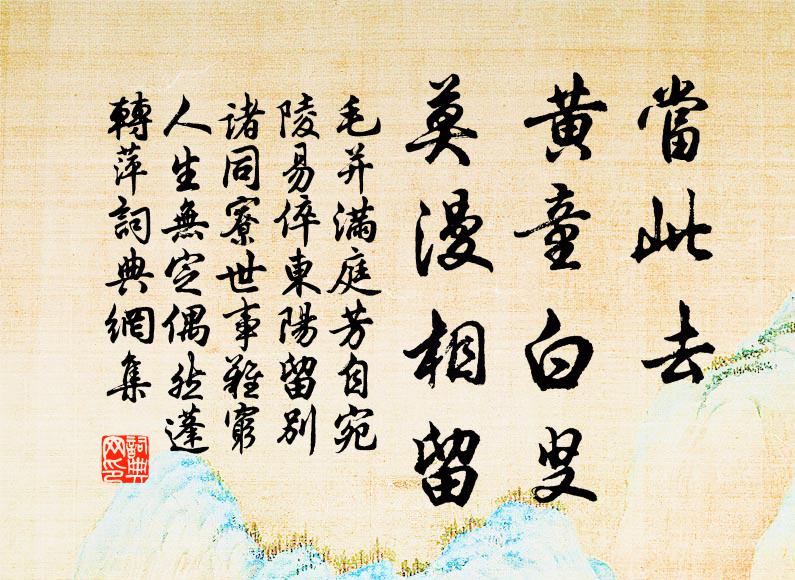 當此去
黃童白叟
莫漫相留
毛幵滿庭芳自宛
陵易倅東陽留別
諸同寮世事難窮
人生無定偶然蓬
轉萍詞典網集
詞典網印